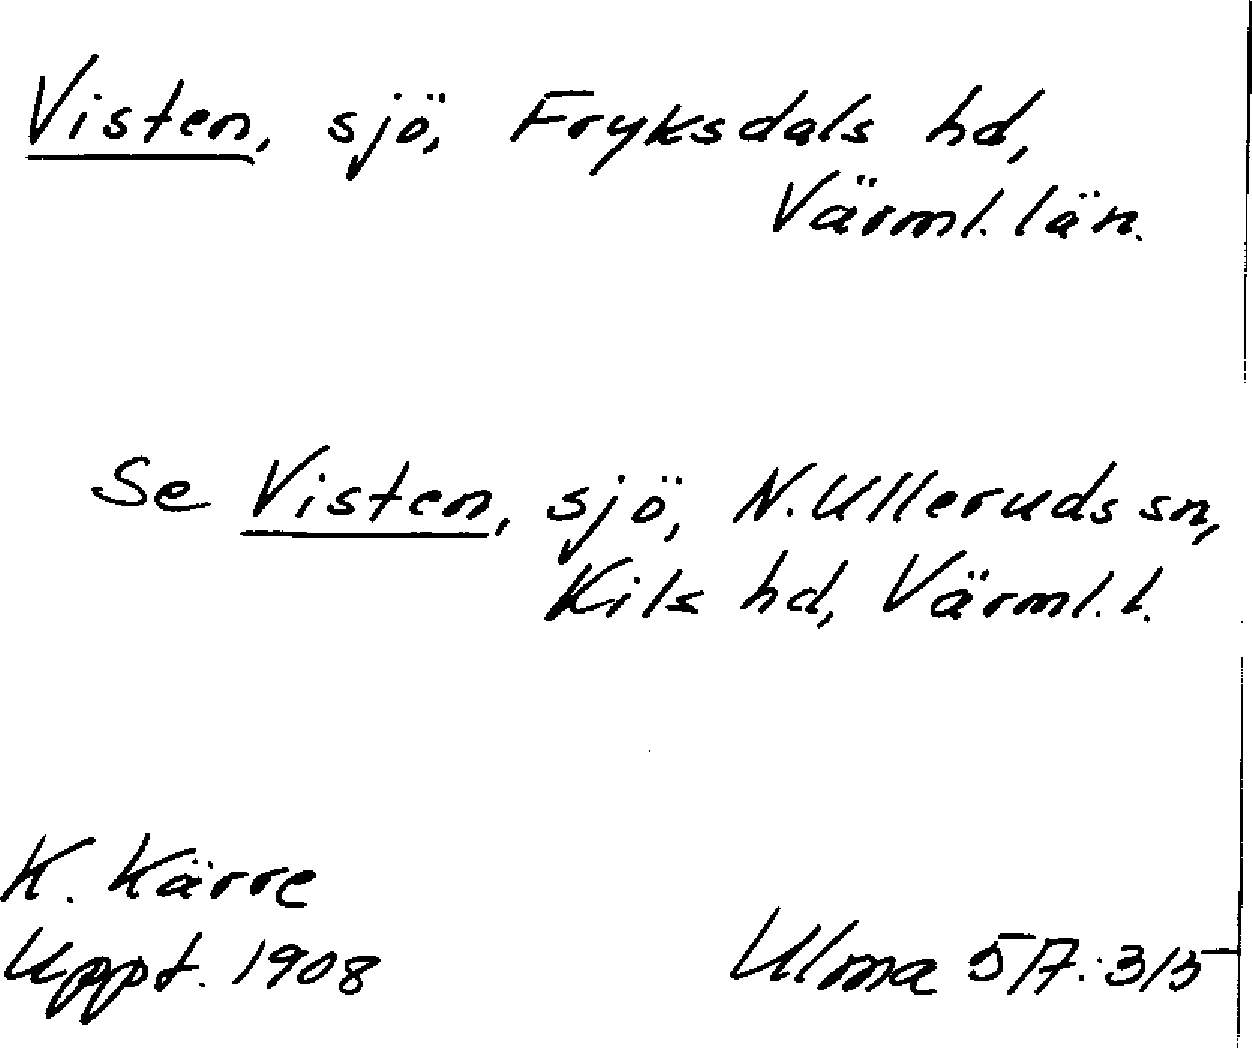 Visten, sjö, Fryksdals hd,
Värml. län.
Se Visten, sjö, N. Ulleruds sn,
Kils hd, Värml. l.
K. Kärre
Uppt. 1908
Ulma 517:3/5